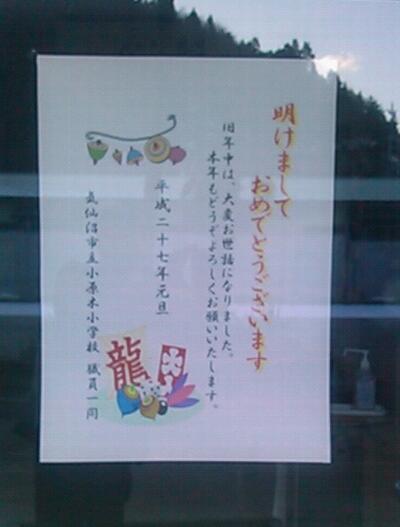 明けまして
おめでとうございます
旧年中は、大変お世話になりました。
本年もどうぞよろしくお願いいたします。
平成二十七年元旦
気仙沼市立小原木小学校 職員一同
龍